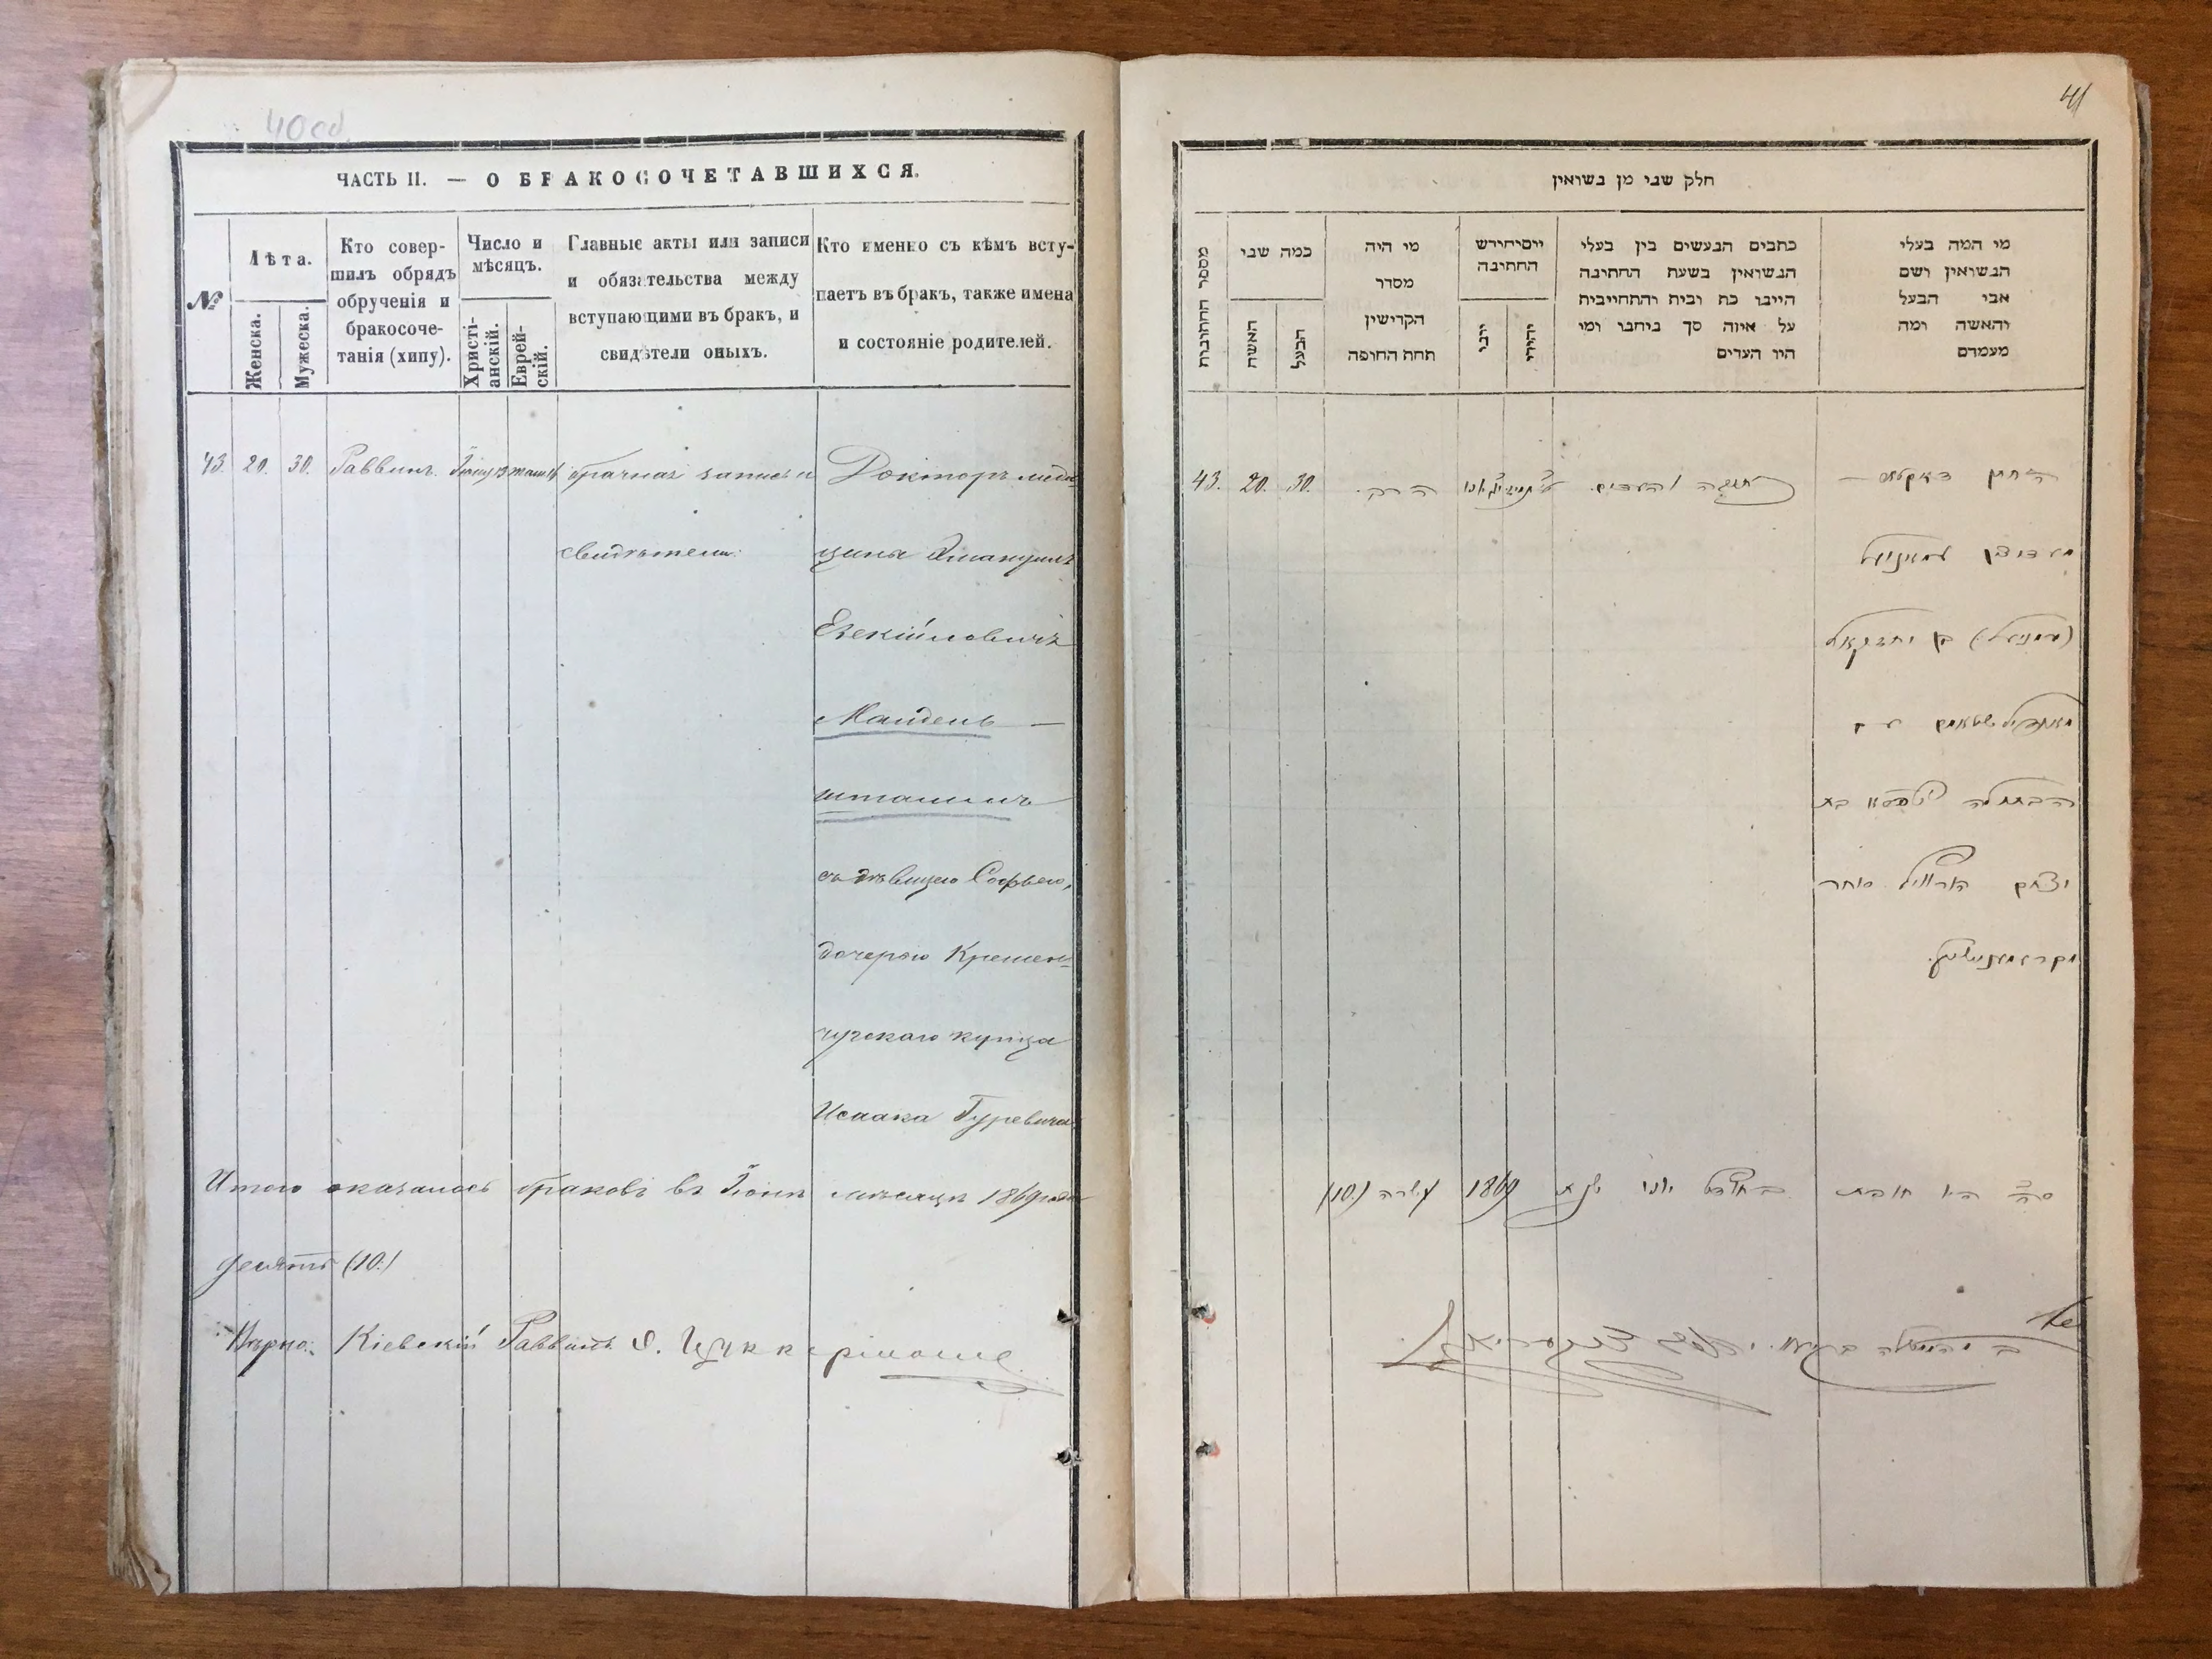 40 об
ЧАСТЬ II. — О БРАКОСОЧЕТАВШИХСЯ.
№
Лѣта.
Женска.
Мужеска.
Кто совер-
шилъ обрядъ
обрученія и
бракосоче-
танія (хипу).
Число и
мѣсяцъ.
Христі-
анскій.
Еврей-
скій.
Главные акты или записи
и обязательства между
вступающими въ бракъ, и
свидѣтели оныхъ.
Кто именно съ кѣмъ всту-
паетъ въ бракъ, также имена
и состояніе родителей.
43. 20. 30. Раввинъ. брачная запись и Докторъ меди-
свидѣтели. цины Эмануилъ
Езекіиловичъ
Мандель —
штаммъ
съ дѣвицею Софьею,
дочерью Кремен-
чугскаго купца
Исаака Гуревича
Итого оказалось браковъ въ Іюнѣ мѣсяцѣ 1869 года
десять (10.)
Вѣрно: Кіевскій Раввинъ Цуккерманъ
41
חלק שני מן נשואין
מספר החתונות
כמה שני
האשה
הבעל
מי היה
מסדר
הקדישין
תחת החופה
יום וחודש
החתונה
יוני
יהודי
כתבים הנעשים בין בעלי
הנשואין בשעת החתונה
היינו כת ובית והתחייבית
על איזה סך ביחבו ומי
היו העדים
מי המה בעלי
הנשואין ושם
אבי הבעל
והאשה ומה
מעמדם
43. 20. 30. הרב. כתובה ועדים. החתן דאקטאר —
מעדיצין עמאנואל
בן יחזקאל
מאנדילשטאם עם
הבתולה בת
יצחק הורוויץ סוחר
1869 עשרה (10) בחודש יוני שנת